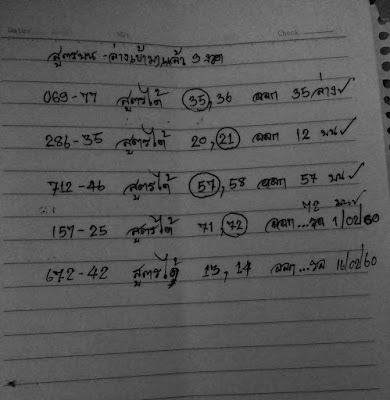 Check
สูตรบน - ล่างเข้ามาแล้ว 9 งวด
069-77 สูตรได้ 35, 36 ออก 35 ล่าง ✓
286-35 สูตรได้ 20, 21 ออก 12 บน ✓
712-46 สูตรได้ 57, 58 ออก 57 บน ✓
72 บน ✓
157-25 สูตรได้ 71, 72 ออก...รอ 1/02/60
672-42 สูตรได้ 13, 14 ออก...รอ 16/02/60